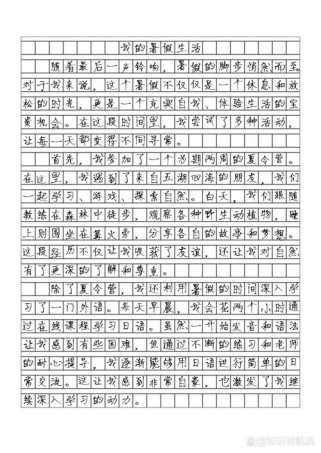 我的暑假生活
随着最后一声铃响，暑假的脚步悄然而至。
对于我来说，这个暑假不仅仅是一个休息和放
松的时光，更是一个充实自我、体验生活的宝
贵机会。在这段时间里，我尝试了多种活动，
让每一天都变得不同寻常。
首先，我参加了一个为期两周的夏令营。
在这里，我遇到了来自五湖四海的朋友，我们
一起学习、游戏、探索自然。白天，我们跟随
教练在森林中徒步，观察各种野生动植物，晚
上则围坐在篝火旁，分享各自的故事和梦想。
这段经历不仅让我收获了友谊，还让我对自然
有了更深的了解和尊重。
除了夏令营，我还利用暑假的时间深入学
习了一门外语。每天早晨，我会花两个小时通
过在线课程学习日语。虽然一开始发音和语法
让我感到有些困难，但通过不断的练习和老师
的耐心指导，我逐渐能够用日语进行简单的日
常交流。这让我感到非常自豪，也激发了我继
续深入学习的动力。